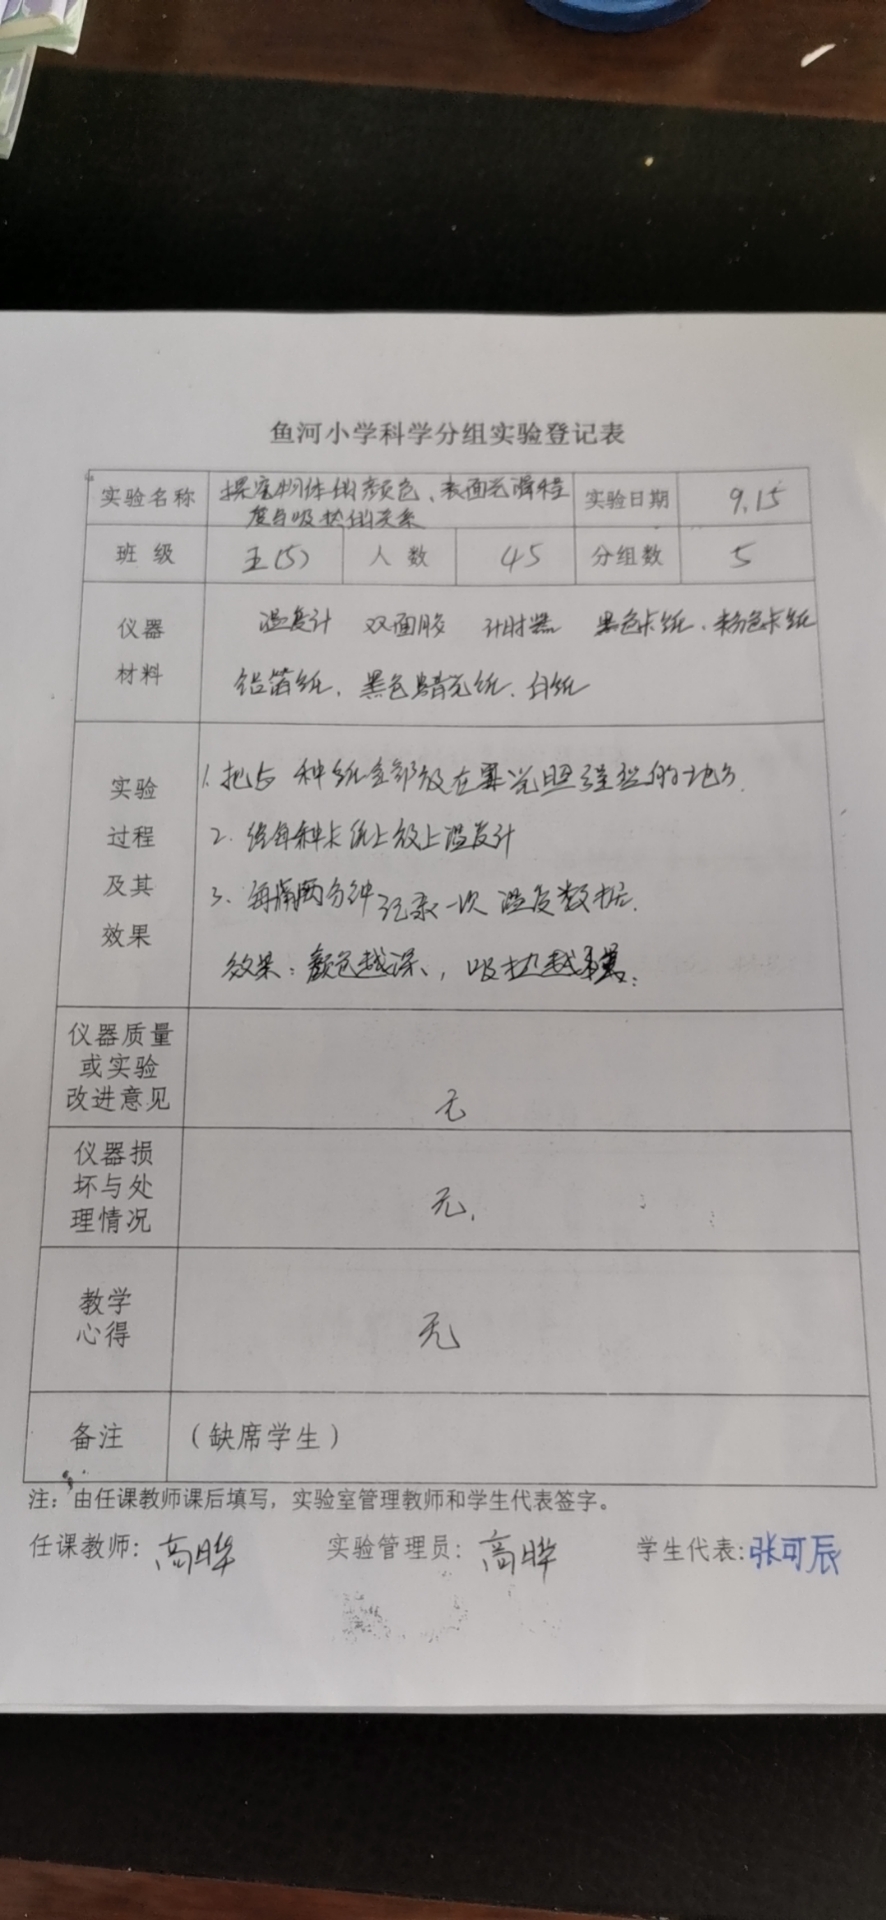 鱼河小学科学分组实验登记表
实验名称 探究物体的颜色、表面光滑程
度与吸热的关系
实验日期 9.15
班 级 五(5) 人 数 45 分组数 5
仪器
材料
温度计 双面胶 计时器 黑色卡纸、粉色卡纸
铝箔纸、黑色蜡光纸、白纸
实验
过程
及其
效果
1.把5种纸全部放在 光照强烈的地方.
2.给每种卡纸上放上温度计
3.每隔两分钟记录一次温度数据.
效果:颜色越深,吸热越
仪器质量
或实验
改进意见
无
仪器损
坏与处
理情况
无.
教学
心得
无
备注 (缺席学生)
注:由任课教师课后填写,实验室管理教师和学生代表签字。
任课教师:高晔 实验管理员:高晔 学生代表:张可辰